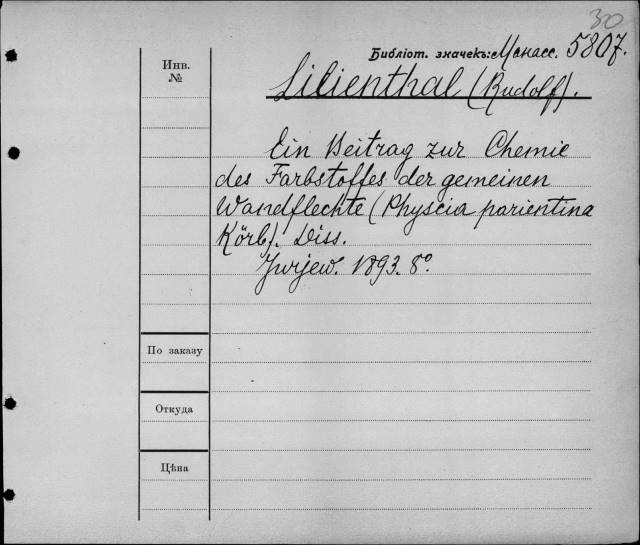 30
Библіот. значекъ: Манасс. 5807.
Инв. №
Lilienthal (Rudolf).
Ein Beitrag zur Chemie
des Farbstoffes der gemeinen
Wandflechte (Physcia parientina
Körb). Diss.
Jurjew. 1893. 8º.
По заказу
Откуда
Цѣна